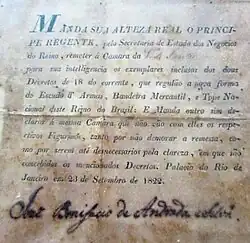 MANDA SUA ALTEZA REAL O PRINCI-
PE REGENTE, pela Secretaria de Estado dos Negocios
do Reino, remeter á Camara da
para sua intelligencia os exemplares inclusos dos dous
Decretos de 18 do corrente, que regulão a nova forma
do Escudo d' Armas, Bandeira Mercantil, e Tope Na-
cional deste Reino do Brasil: E Manda outro sim de-
clarar á mesma Camara que não vão com elles os respe-
ctivos Figurinos, tanto por não demorar a remessa, co-
mo por serem até desnecessarios pela clareza, em que são
concebidos os mencionados Decretos. Palacio do Rio de
Janeiro em 23 de Setembro de 1822.
José Bonifacio de Andrada e Silva